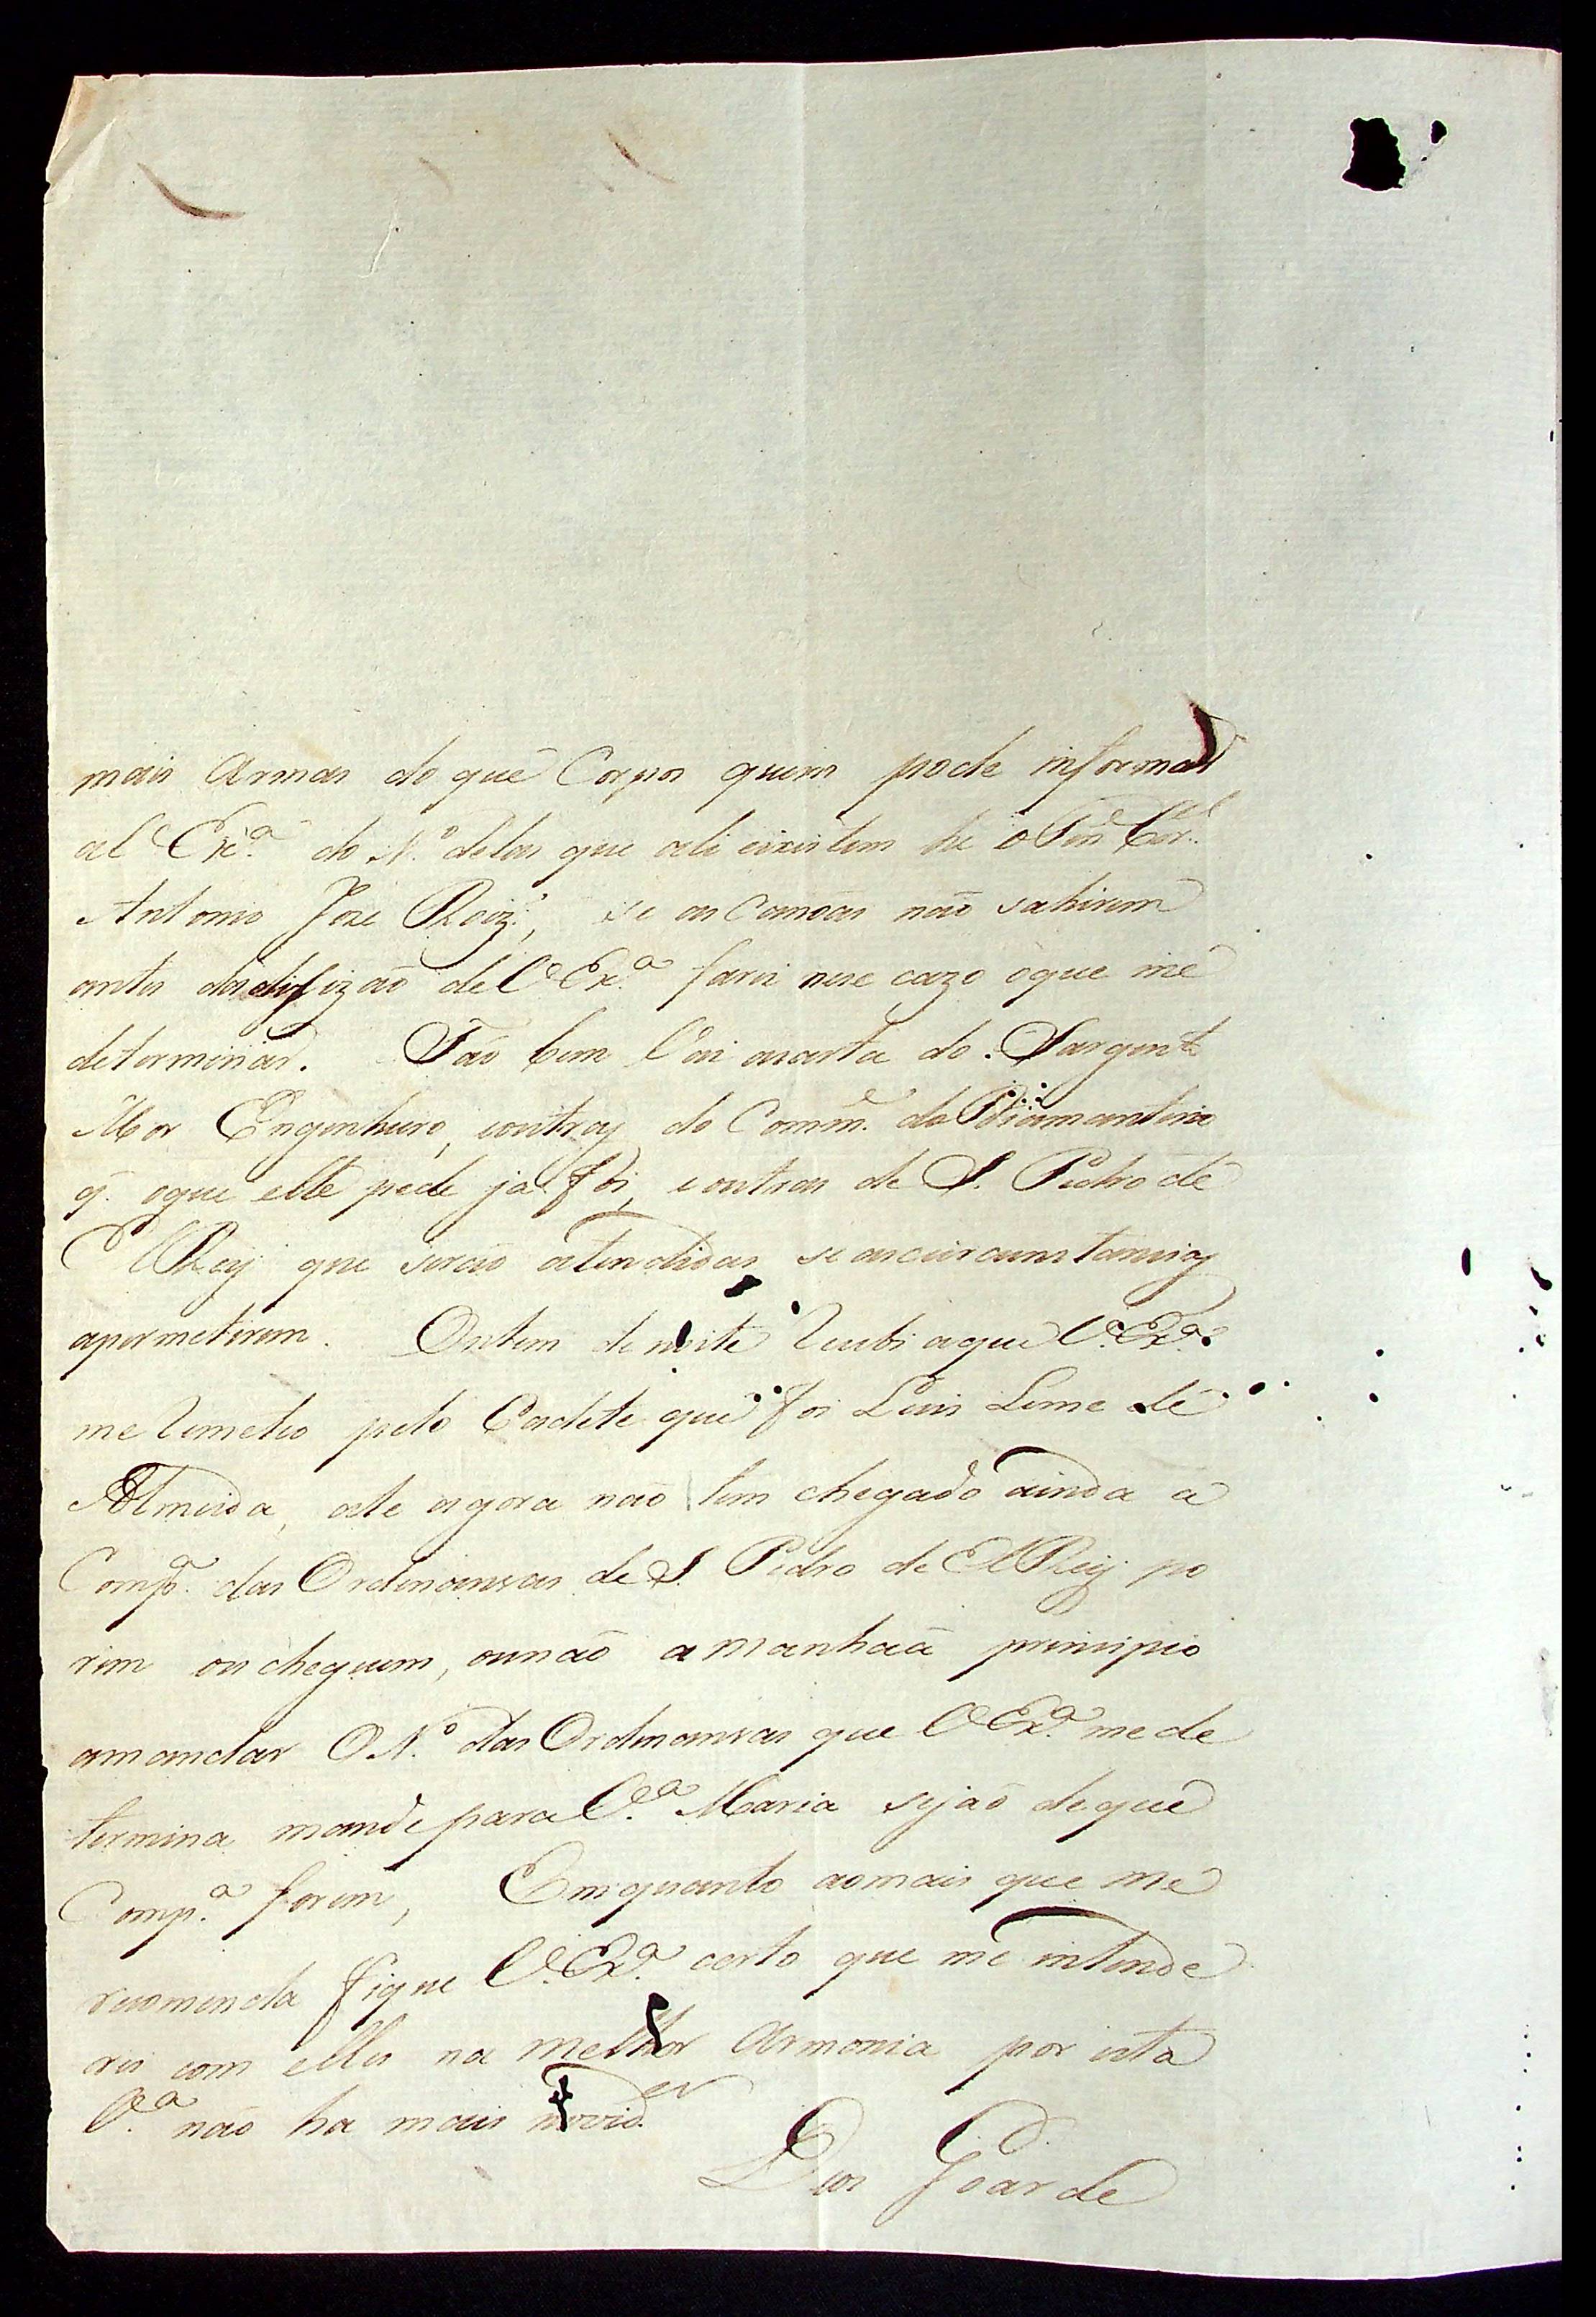 mais Armas do que Corpos quem pode informar
a V. Exc.ª do N.º delas que ali existem hé o Ten.e Cor.el
Antonio Joze Roiz', se as Canoas não sahirem
antes da de V. Ex.ª farei nese cazo o que me
determinar. Tão bem Vai acarta do Sargent
Mor Engenheiro, eoutras do Comm.e do Diamantino
q.' oque elle pede ja foi, eoutras de S. Pedro de
ElRey que serão atendidas se as circunstancias
apermetirem. Ontem de noite Recebi aque V. Ex.ª
me Remeteo pelo Cadete que foi Luis Leme de
Almeida, ate agora não tem chegado ainda a
Comp.ª das Ordenansas de S. Pedro de ElRey po
rem ou cheguem, ounão amanhaã prinsipio
amandar O N.º das Ordenansas que V. Ex.ª me de
termina mande para V.ª Maria sejão deque
Comp.ª forem, Emquanto aomais que me
recomenda fique V. Ex.ª certo que me intende
rei com elles na melhor Armonia por esta
V.ª não ha mais novid.es
Deos Goarde